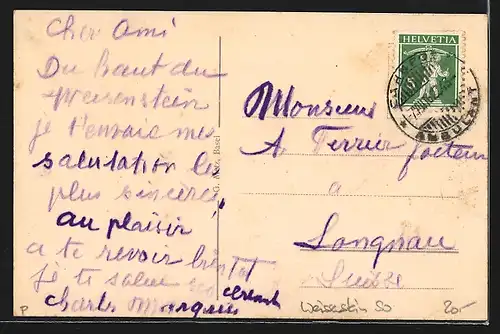 Cher Ami
Du haut du
Weisenstein
je t'envoie mes
salutation les
plus sincère
au plaisir
a te revoir bientot
Je te salue
Charles
HELVETIA
5
AMBULANT
Monsieur
A Terrier facteur
a
Langnau
Suisse
Basel
Weissenstein So
20.-
P